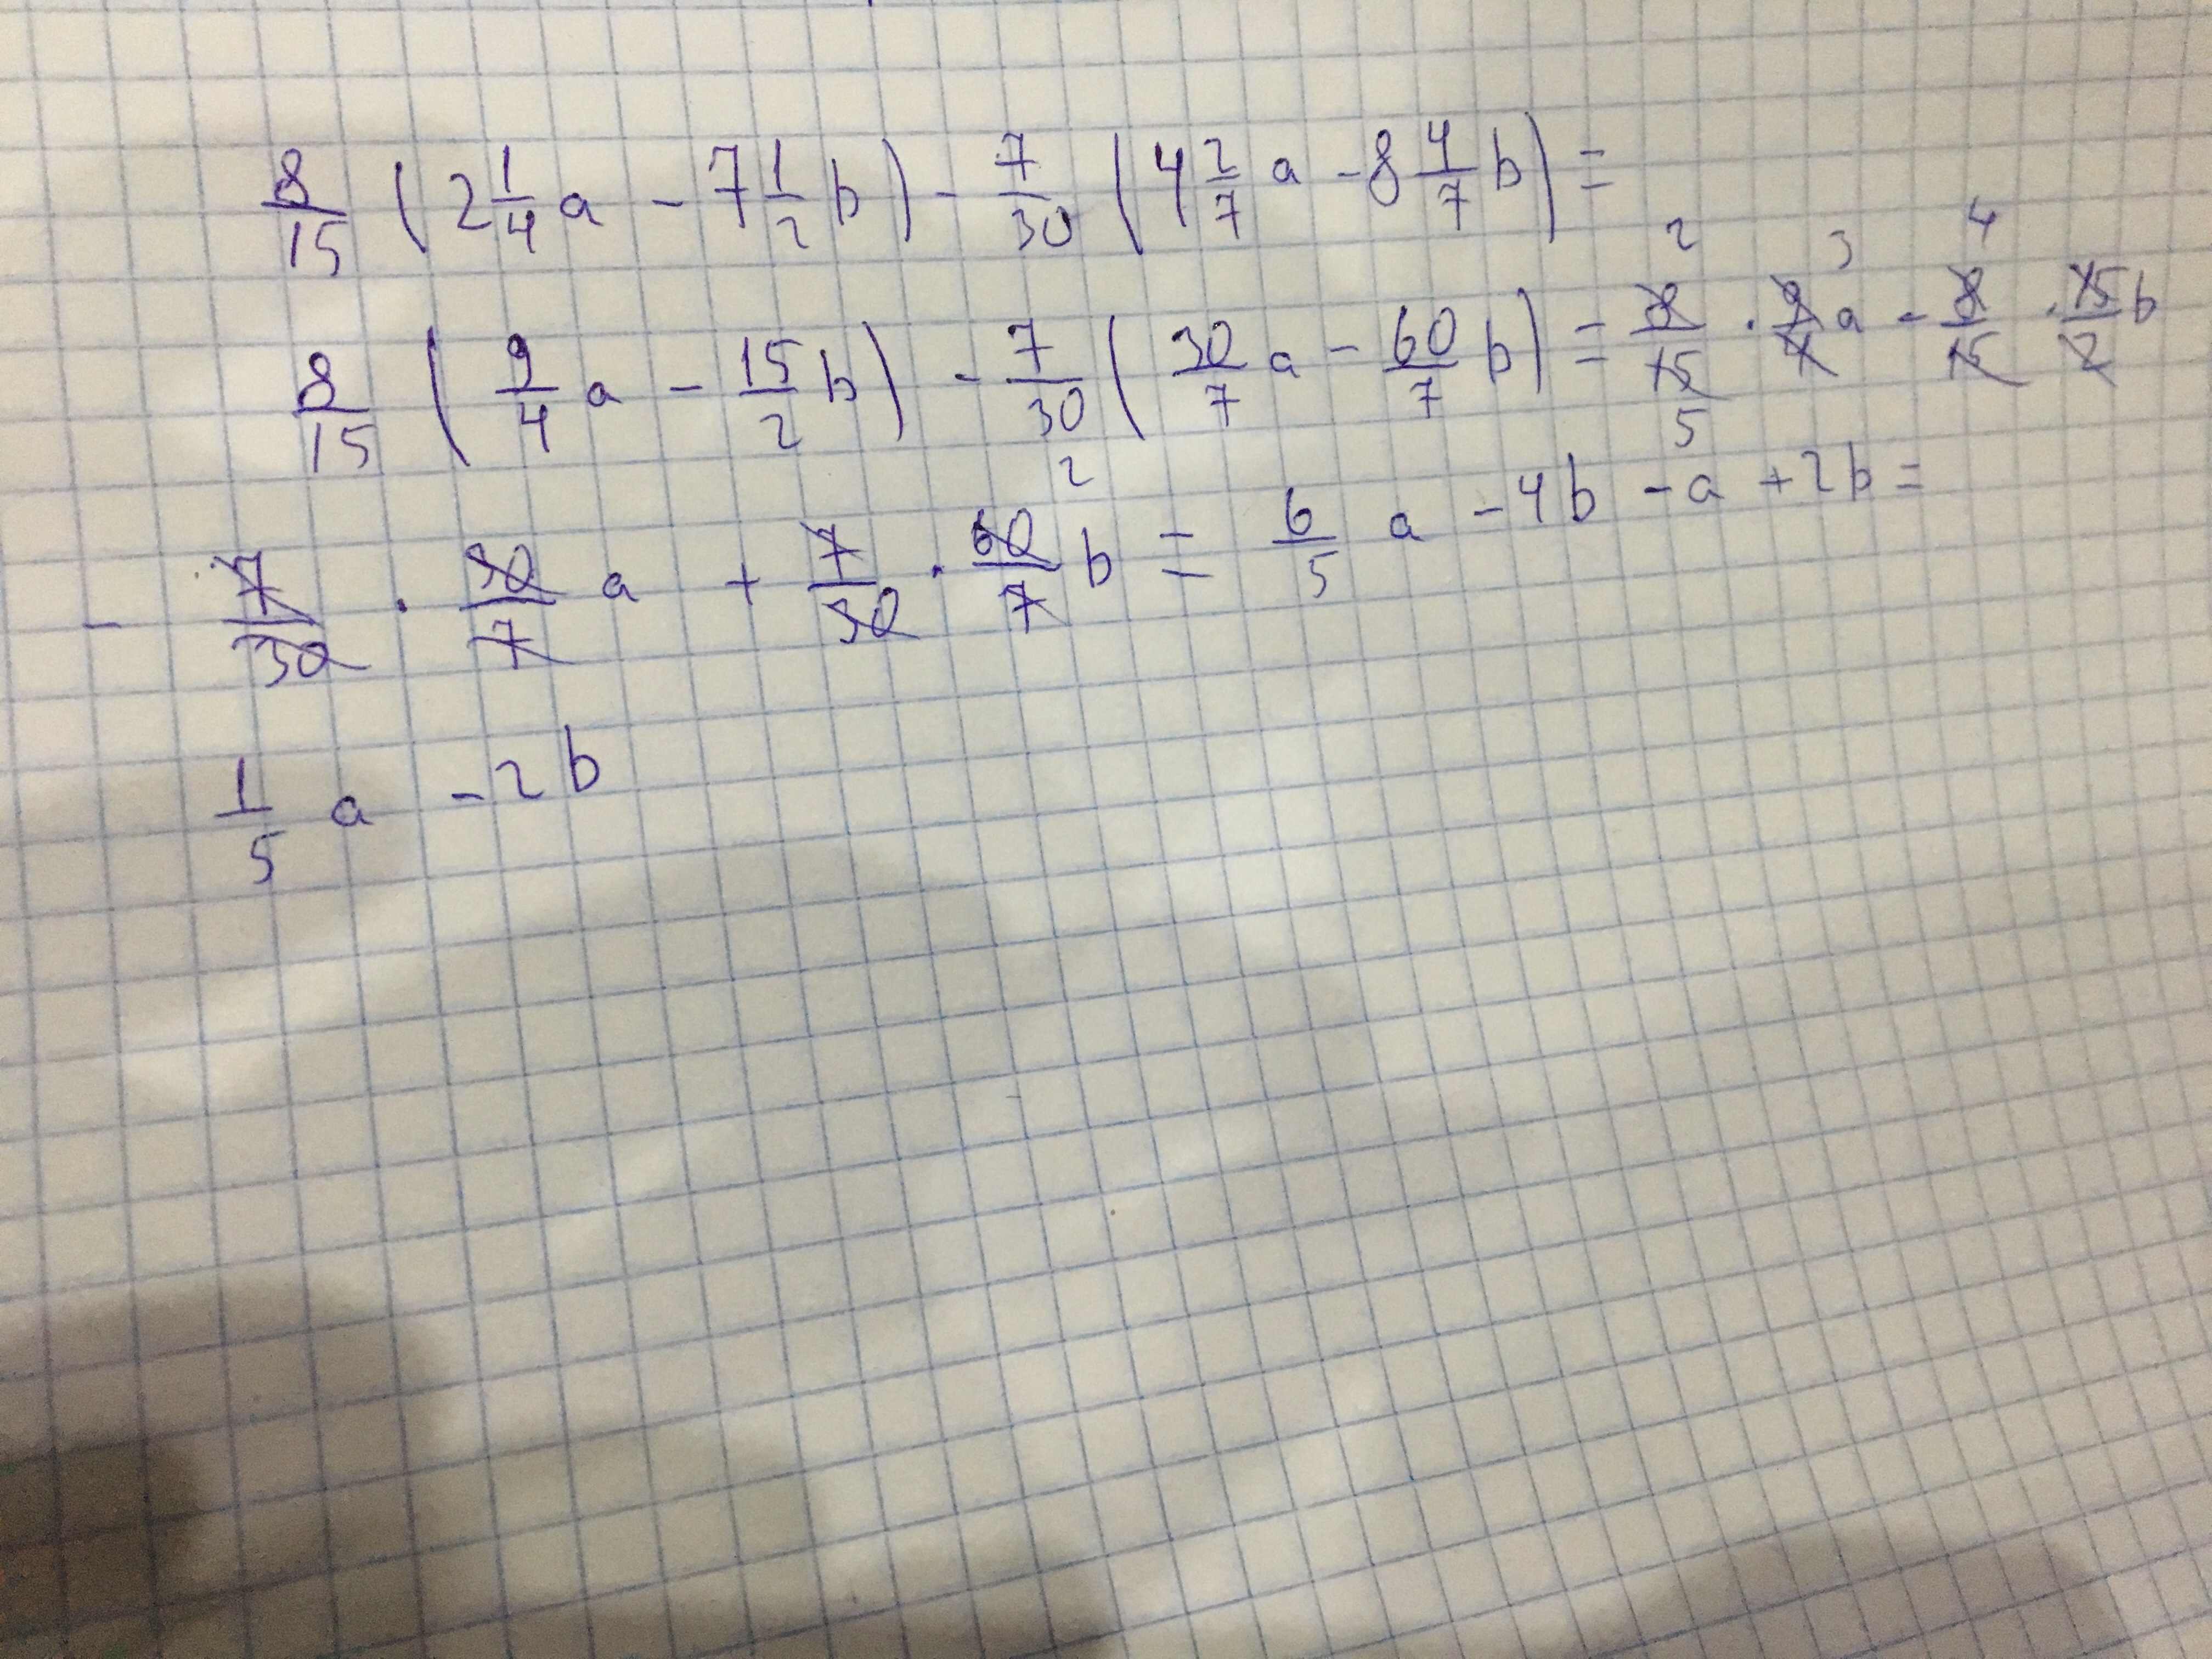 8/15 (2 1/4 a - 7 1/2 b) - 7/30 (4 2/7 a - 8 4/7 b) =
8/15 (9/4 a - 15/2 b) - 7/30 (30/7 a - 60/7 b) = 8/15 2 5 · 9/4 3 a - 8/15 4 · 15/2 b
- 7/30 · 30/7 a + 7/30 · 60/7 2 b = 6/5 a - 4b - a + 2b =
1/5 a - 2b